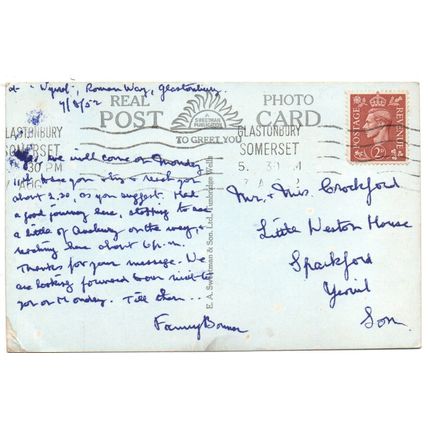 at "Wynol", Roman Way, Glastonbury
7/8/52
REAL PHOTO
POST CARD
SWEETMAN
PUBLICATION
TO GREET YOU
GLASTONBURY
SOMERSET
5. 30 PM
7 AUG
GLASTONBURY
SOMERSET
5. 30 PM
7 A
POSTAGE
REVENUE
2D
we will come on Monday
if you & reach you
about 2.30, as you suggest. Had
a good journey here, stopping to see
a little of on the way,
reaching here about 6 p.m.
Thanks for your message. We
are looking forward to our visit to
you on Monday. Till then...
Fanny
E. A. Sweetman & Son, Ltd., Tunbridge Wells
Mr. & Mrs Crockford
Little Weston House
Sparkford
Yeovil
Som.